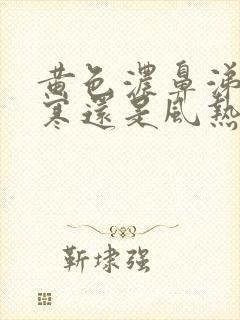 黄色濃鼻涕
寒還是風熱
靳埭强